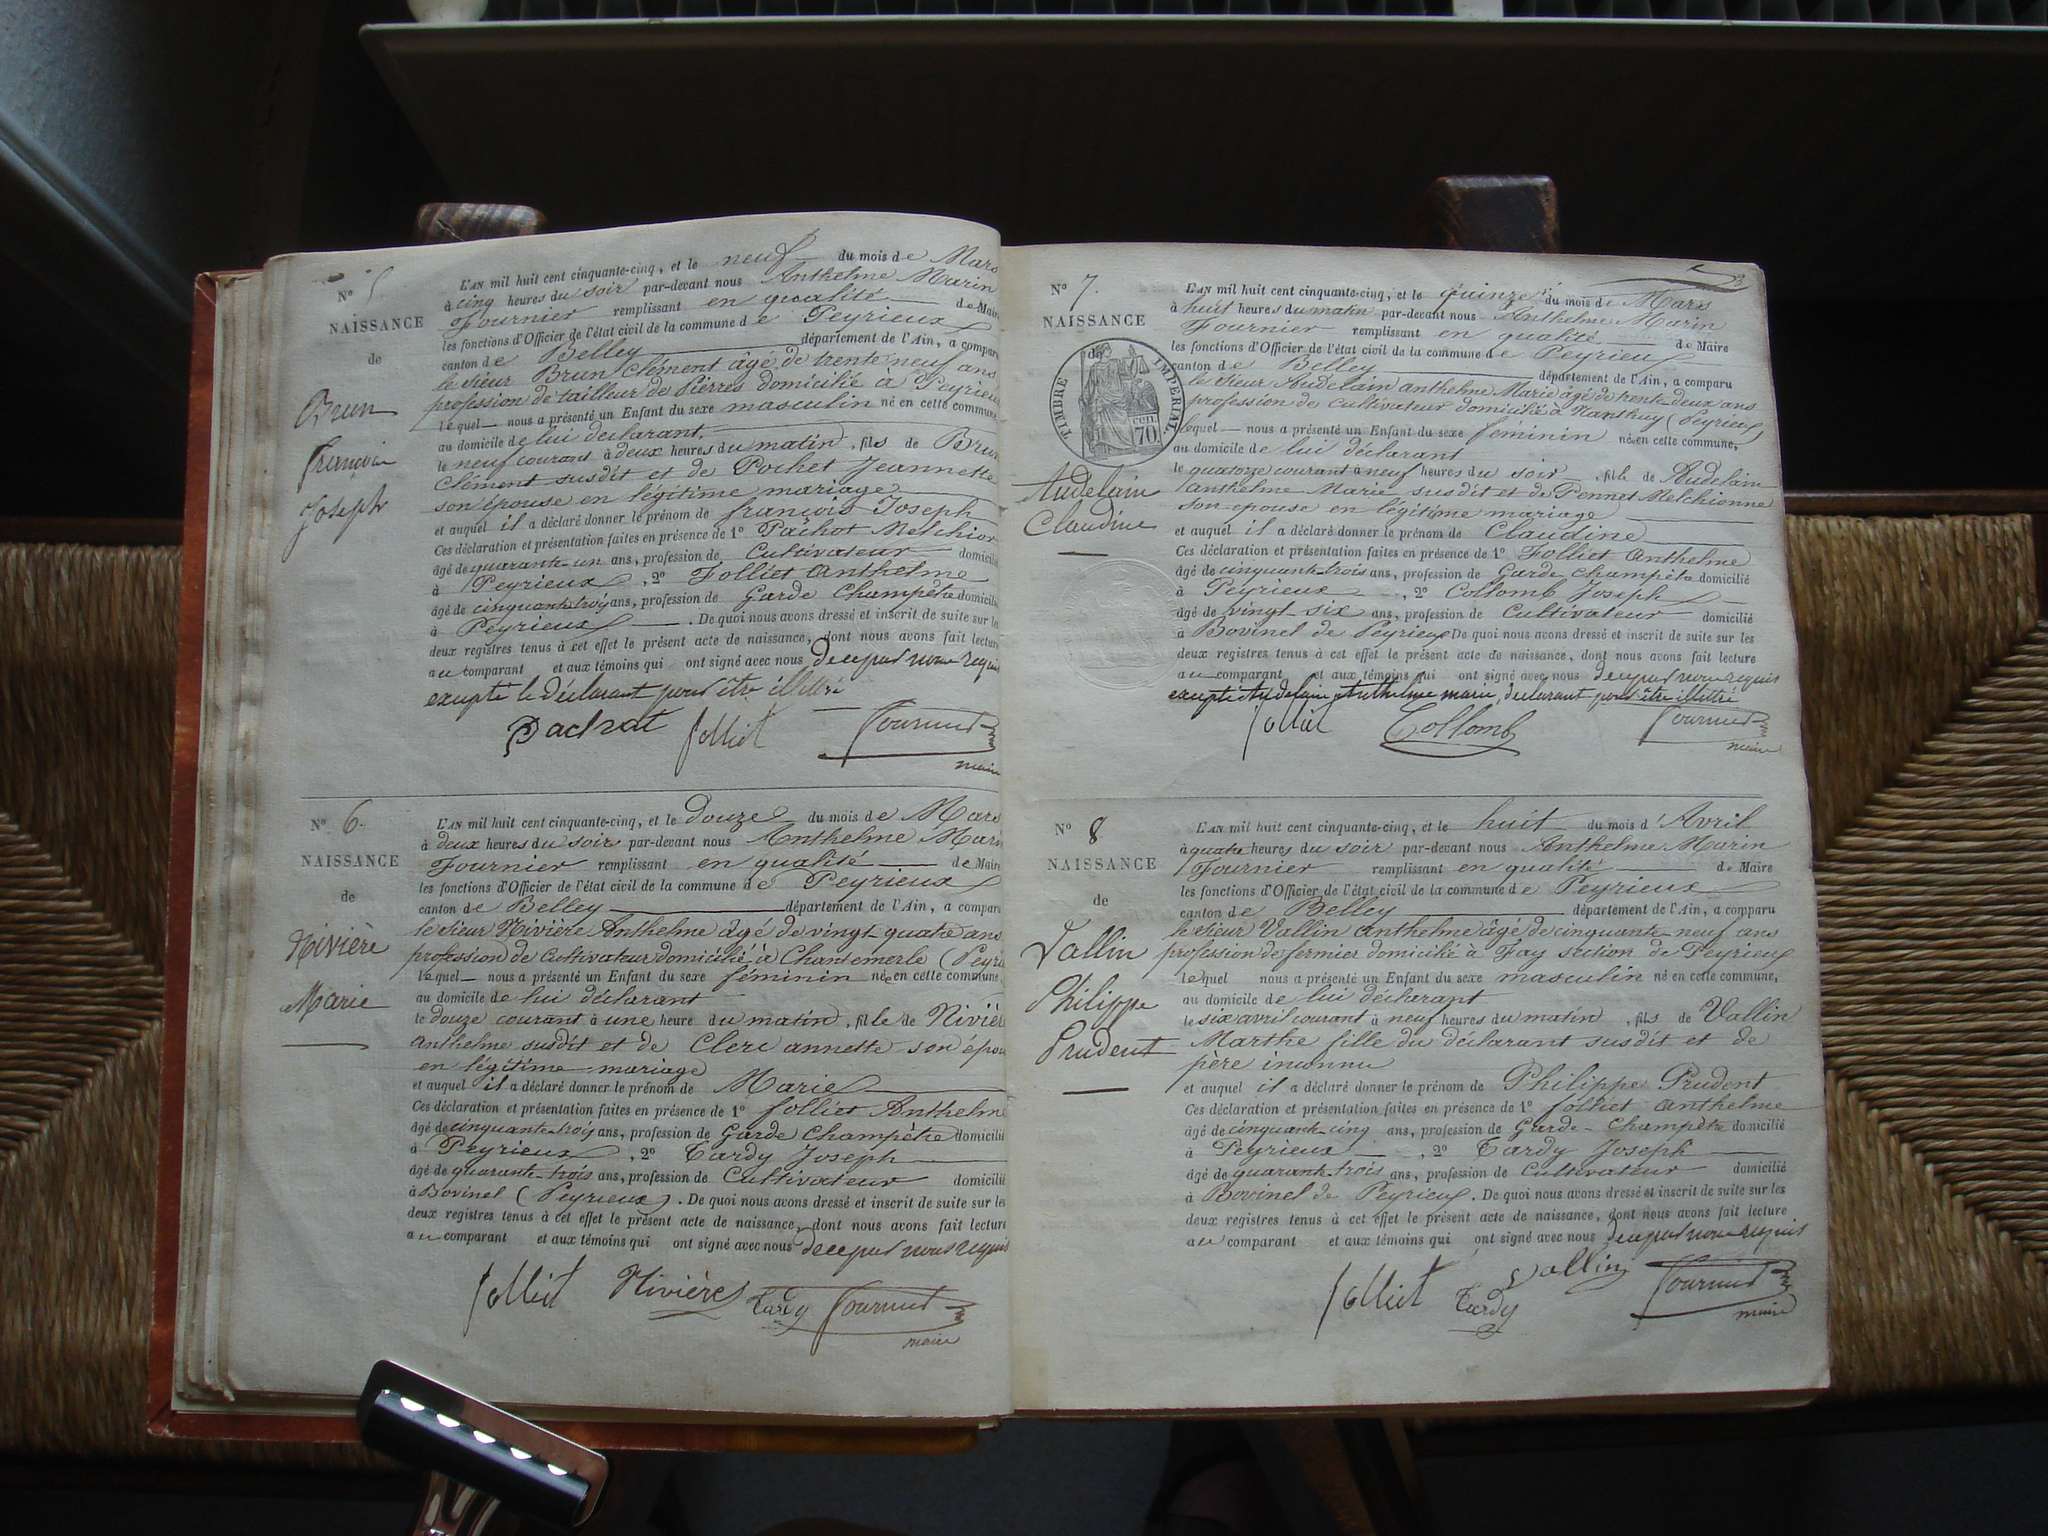 N° 5
NAISSANCE
de
Brun
François
Joseph
L'AN mil huit cent cinquante-cinq, et le neuf du mois de Mars
à cinq heures du soir par-devant nous Anthelme Marin
Fournier remplissant en qualité de Maire
les fonctions d'Officier de l'état civil de la commune de Peyrieux
canton de Belley département de l'Ain, a comparu
le sieur Brun Clément âgé de trente neuf ans
profession de tailleur de Pierres domicilié à Peyrieux
lequel nous a présenté un Enfant du sexe masculin né en cette commune
au domicile de lui déclarant
le neuf courant à deux heures du matin, fils de Brun
Clément susdit et de Pochet Jeannette
son épouse en légitime mariage
et auquel il a déclaré donner le prénom de françois Joseph
Ces déclaration et présentation faites en présence de 1° Pachot Melchior
âgé de quarante-un ans, profession de Cultivateur domicilié
à Peyrieux, 2° Folliet Anthelme
âgé de cinquante trois ans, profession de Garde Champêtre domicilié
à Peyrieux. De quoi nous avons dressé et inscrit de suite sur les
deux registres tenus à cet effet le présent acte de naissance, dont nous avons fait lecture
au comparant et aux témoins qui ont signé avec nous de ce par nous requis
excepté le déclarant pour être illettré
Pachot folliet Fournier
maire
N° 6.
NAISSANCE
de
Nivière
Marie
L'AN mil huit cent cinquante-cinq, et le douze du mois de Mars
à deux heures du soir par-devant nous Anthelme Marin
Fournier remplissant en qualité de Maire
les fonctions d'Officier de l'état civil de la commune de Peyrieux
canton de Belley département de l'Ain, a comparu
le sieur Nivière Anthelme âgé de vingt-quatre ans
profession de Cultivateur domicilié à Chantemerle (Peyri
lequel nous a présenté un Enfant du sexe féminin née en cette commune
au domicile de lui déclarant
le douze courant à une heure du matin, fille de Nivière
Anthelme susdit et de Clerc annette son épou
en légitime mariage
et auquel il a déclaré donner le prénom de Marie
Ces déclaration et présentation faites en présence de 1° folliet Anthelme
âgé de cinquante-trois ans, profession de Garde Champêtre domicilié
à Peyrieux, 2° Tardy Joseph
âgé de quarante-trois ans, profession de Cultivateur domicilié
à Bovinel (Peyrieux). De quoi nous avons dressé et inscrit de suite sur les
deux registres tenus à cet effet le présent acte de naissance, dont nous avons fait lecture
au comparant et aux témoins qui ont signé avec nous de ce par nous requis
folliet Nivière Tardy Fournier
maire
3
N° 7.
NAISSANCE
de
TIMBRE IMPERIAL
70 cen
Audelain
Claudine
L'AN mil huit cent cinquante-cinq, et le quinze du mois de Mars
à huit heures du matin par-devant nous Anthelme Marin
Fournier remplissant en qualité de Maire
les fonctions d'Officier de l'état civil de la commune de Peyrieux
canton de Belley département de l'Ain, a comparu
le sieur Audelain anthelme Marie âgé de trente deux ans
profession de cultivateur domicilié à Nanthuy (Peyrieux)
lequel nous a présenté un Enfant du sexe féminin née en cette commune,
au domicile de lui déclarant
le quatorze courant à neuf heures du soir, fille de Audelain
anthelme Marie susdit et de Pennet Melchionne
son épouse en légitime mariage
et auquel il a déclaré donner le prénom de Claudine
Ces déclaration et présentation faites en présence de 1° Folliet Anthelme
âgé de cinquante-trois ans, profession de Garde champêtre domicilié
à Peyrieux, 2° Collomb Joseph
âgé de vingt-six ans, profession de Cultivateur domicilié
à Bovinel de Peyrieux De quoi nous avons dressé et inscrit de suite sur les
deux registres tenus à cet effet le présent acte de naissance, dont nous avons fait lecture
au comparant et aux témoins qui ont signé avec nous de ce par nous requis
excepté Audelain Anthelme marie, déclarant pour être illettré
folliet Collomb Fournier
maire
N° 8
NAISSANCE
de
Vallin
Philippe
Prudent
L'AN mil huit cent cinquante-cinq, et le huit du mois d'Avril
à quatre heures du soir par-devant nous Anthelme Marin
Fournier remplissant en qualité de Maire
les fonctions d'Officier de l'état civil de la commune de Peyrieux
canton de Belley département de l'Ain, a comparu
le sieur Vallin Anthelme âgé de cinquante-neuf ans
profession de fermier domicilié à Fay section de Peyrieux
lequel nous a présenté un Enfant du sexe masculin né en cette commune,
au domicile de lui déclarant
le six avril courant à neuf heures du matin, fils de Vallin
Marthe fille du déclarant susdit et de
père inconnu
et auquel il a déclaré donner le prénom de Philippe Prudent
Ces déclaration et présentation faites en présence de 1° folliet anthelme
âgé de cinquante-cinq ans, profession de Garde-Champêtre domicilié
à Peyrieux, 2° Tardy Joseph
âgé de quarante-trois ans, profession de Cultivateur domicilié
à Bovinel de Peyrieux. De quoi nous avons dressé et inscrit de suite sur les
deux registres tenus à cet effet le présent acte de naissance, dont nous avons fait lecture
au comparant et aux témoins qui ont signé avec nous de ce par nous requis
folliet Tardy Vallin Fournier
maire